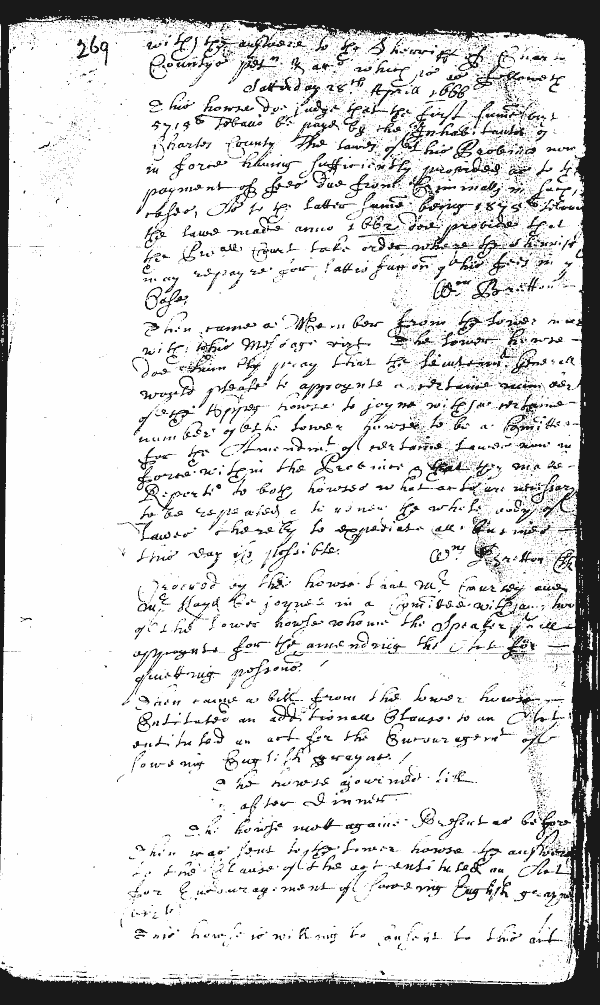 269
with the answere to the Sherriff of Charles
Countyes petn & are which is as followeth
Satterday 28th Aprill 1666
This howse doe judge that the first summe
5715 Tobacco be payd by the Inhabitants of
Charles County The lawes of this Province now
in force having sufficiently provided as to
payment of fees due from Criminalls in such
cases, As to the latter summe being 1878
the lawe made anno 1662 doe provide that
the Court take order where the Sherriff
may repayre for sattisfaction of his fees in
Case. Wm Bretton
Then came a Member from the lower howse
with this Message vizt The lower howse
doe humbly pray that the Lieutennt Generall
would please to appoynte a certaine number
of the upper howse to joyne with a certaine
number of the lower howse to be a Comittee
for the Amendmt of certaine lawes now in
force within the Province & that they make
Reporte to both howses what acts are necessary
to be repealed the whole body of
lawes thereby to expediate all business
this day if possible. Wm Bretton
Ordered by the howse that Mr Coursey and
Mr Lloyd be joyned in a Comittee with
of the lower howse whome the Speaker shall
appoynte for the amending the Act for
quietting possions
Then came a bill from the lower howse
Entituled an additionall Clause to an Act
entituled an act for the Encouragemt of
sowing English grayne
The howse ajourned till
after Dinner
The howse mett againe Present as before
Then was sent to the lower howse the answere
to the Clause of the act entituled an Act
for Encouragement of sowing English grayne
This howse is willing to consent to this act